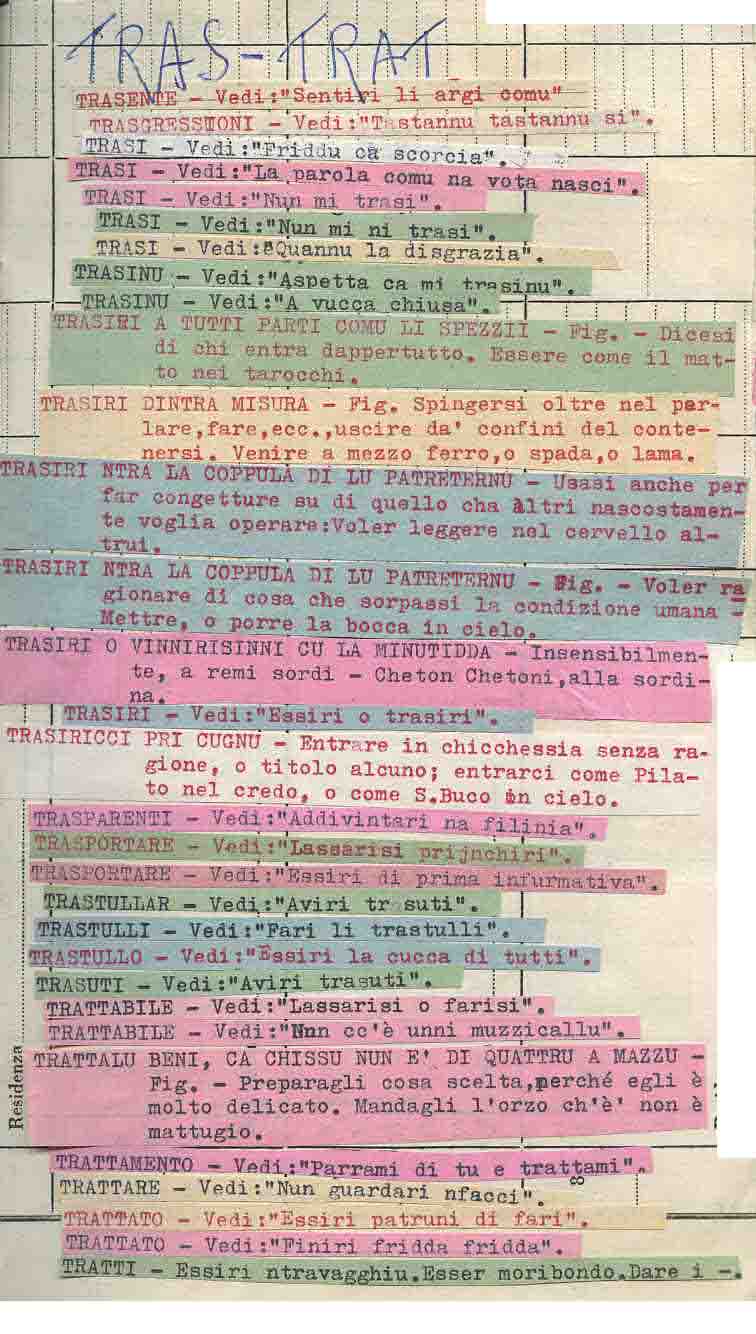 TRAS-TRAT
TRASENTE - Vedi:"Sentiri li argi comu"
TRASGRESSIONI - Vedi:"Tastannu tastannu si".
TRASI - Vedi:"Friddu ca scorcia".
TRASI - Vedi:"La parola comu na vota nasci".
TRASI - Vedi:"Nun mi trasi".
TRASI - Vedi:"Nun mi ni trasi".
TRASI - Vedi:"Quannu la disgrazia".
TRASINU - Vedi:"Aspetta ca mi trasinu".
TRASINU - Vedi:"A vucca chiusa".
TRASIRI A TUTTI PARTI COMU LI SPEZZII - Fig. - Dicesi
di chi entra dappertutto. Essere come il mat-
to nei tarocchi.
TRASIRI DINTRA MISURA - Fig. Spingersi oltre nel par-
lare,fare,ecc.,uscire da' confini del conte-
nersi. Venire a mezzo ferro,o spada,o lama.
TRASIRI NTRA LA COPPULA DI LU PATRETERNU - Usasi anche per
far congetture su di quello cha àltri nascostamen-
te voglia operare:Voler leggere nel cervello al-
trui.
TRASIRI NTRA LA COPPULA DI LU PATRETERNU - Fig. - Voler ra
gionare di cosa che sorpassi la condizione umana -
Mettre, o porre la bocca in cielo.
TRASIRI O VINNIRISINNI CU LA MINUTIDDA - Insensibilmen-
te, a remi sordi - Cheton Chetoni,alla sordi-
na.
TRASIRI - Vedi:"Essiri o trasiri".
TRASIRICCI PRI CUGNU - Entrare in chicchessia senza ra-
gione, o titolo alcuno; entrarci come Pila-
to nel credo, o come S.Buco in cielo.
TRASPARENTI - Vedi:"Addivintari na filinia".
TRASPORTARE - Vedi:"Lassarisi prijnchiri".
TRASPORTARE - Vedi:"Essiri di prima infurmativa".
TRASTULLAR - Vedi:"Aviri tr suti".
TRASTULLI - Vedi:"Fari li trastulli".
TRASTULLO - Vedi:"Essiri la cucca di tutti".
TRASUTI - Vedi:"Aviri trasuti".
TRATTABILE - Vedi:"Lassarisi o farisi".
TRATTABILE - Vedi:"Nnn cc'è unni muzzicallu".
TRATTALU BENI, CA CHISSU NUN E' DI QUATTRU A MAZZU -
Fig. - Preparagli cosa scelta,perché egli è
molto delicato. Mandagli l'orzo ch'è' non è
mattugio.
Residenza
TRATTAMENTO - Vedi:"Parrami di tu e trattami".
TRATTARE - Vedi:"Nun guardari nfacci".
8
TRATTATO - Vedi:"Essiri patruni di fari".
TRATTATO - Vedi:"Finiri fridda fridda".
TRATTI - Essiri ntravagghiu.Esser moribondo.Dare i -.